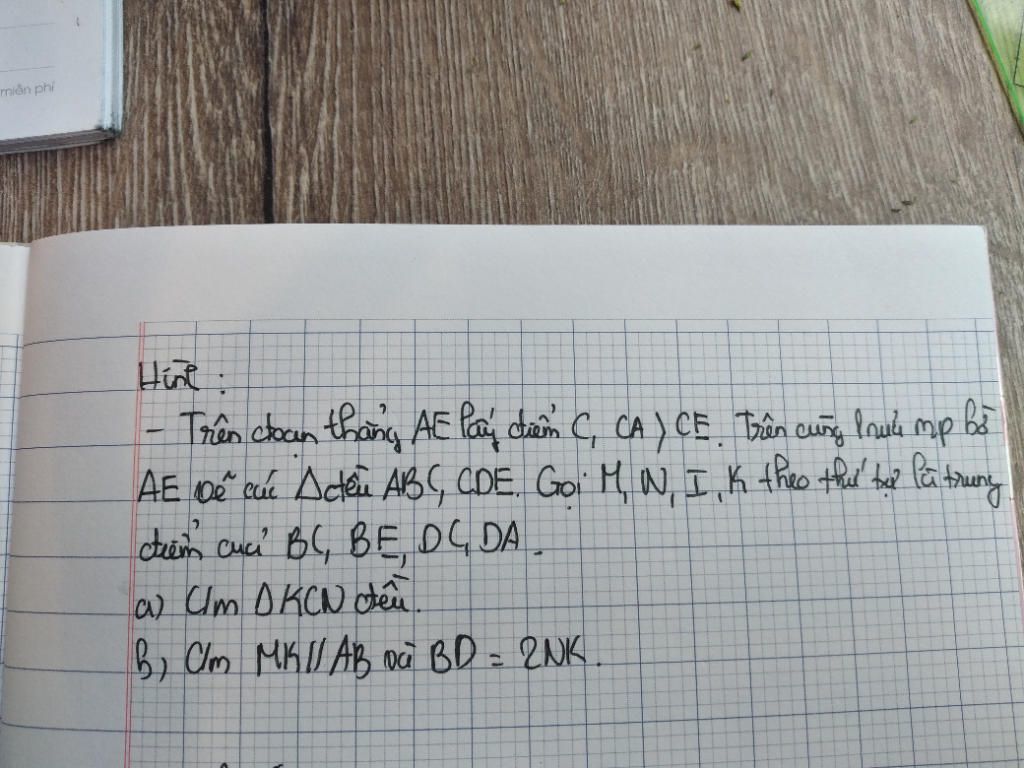 miễn phí
Hình :
- Trên đoạn thẳng AE lấy điểm C, CA > CE. Trên cùng 1 nửa mp bờ
AE vẽ các Δ đều ABC, CDE. Gọi M, N, I, K theo thứ tự là trung
điểm của BC, BE, DC, DA.
a) C/m ΔKCN đều.
b) C/m MK // AB và BD = 2NK.